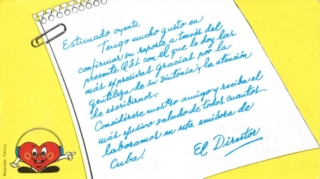 Estimado oyente
Tengo mucho gusto en
confirmar su reporte a través del
presente QSL con el que le doy las
más expresivas gracias por la
gentileza de su sintonía y la atención
de escribirnos.
Considérese nuestro amigo y reciba el
más efusivo saludo de todos cuantos
laboramos en esta emisora de
Cuba.
El Director